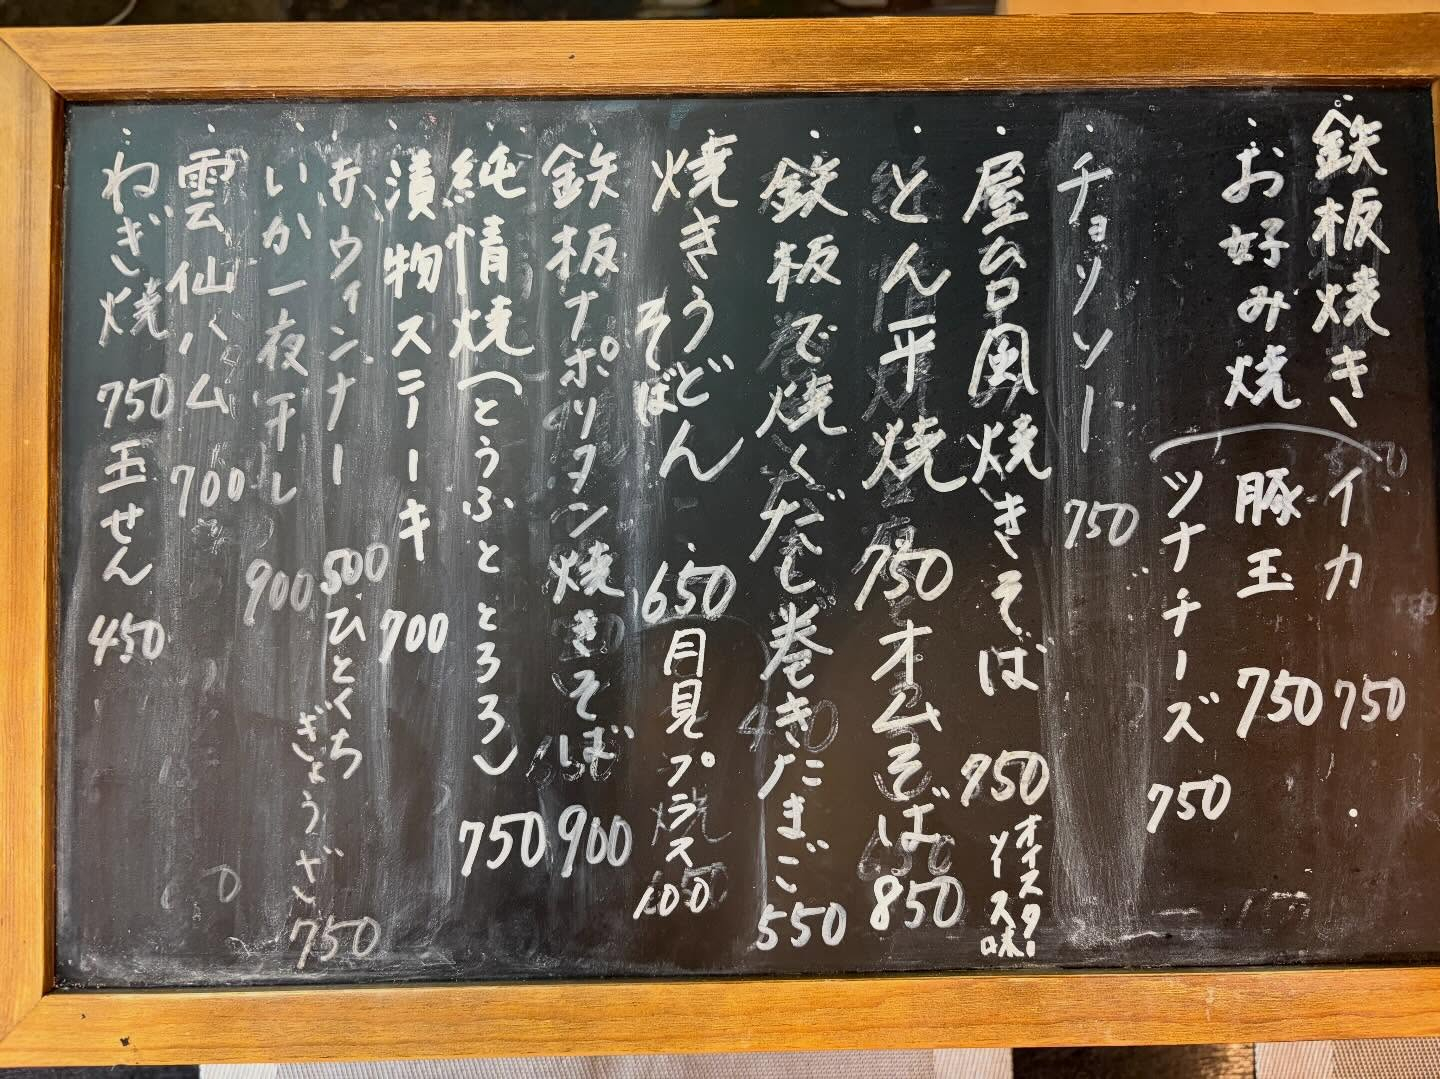 鉄板焼き
イカ 750
・お好み焼
豚玉 750
ツナチーズ 750
・チョソソー 750
・屋台風焼きそば 750
オイスター
ソース味
・とん平焼 750
オムそば 850
・鉄板で焼くだし巻きたまご 550
・焼きうどん
そば
・650
月見プラス
100
・鉄板ナポリタン焼きそば 900
・純情焼(とうふととろろ) 750
・漬物ステーキ 700
・赤ウィンナー 500
ひとくち
ぎょうざ 750
・いか一夜干し 900
・雲仙ハム 700
・ねぎ焼 750
玉せん 450